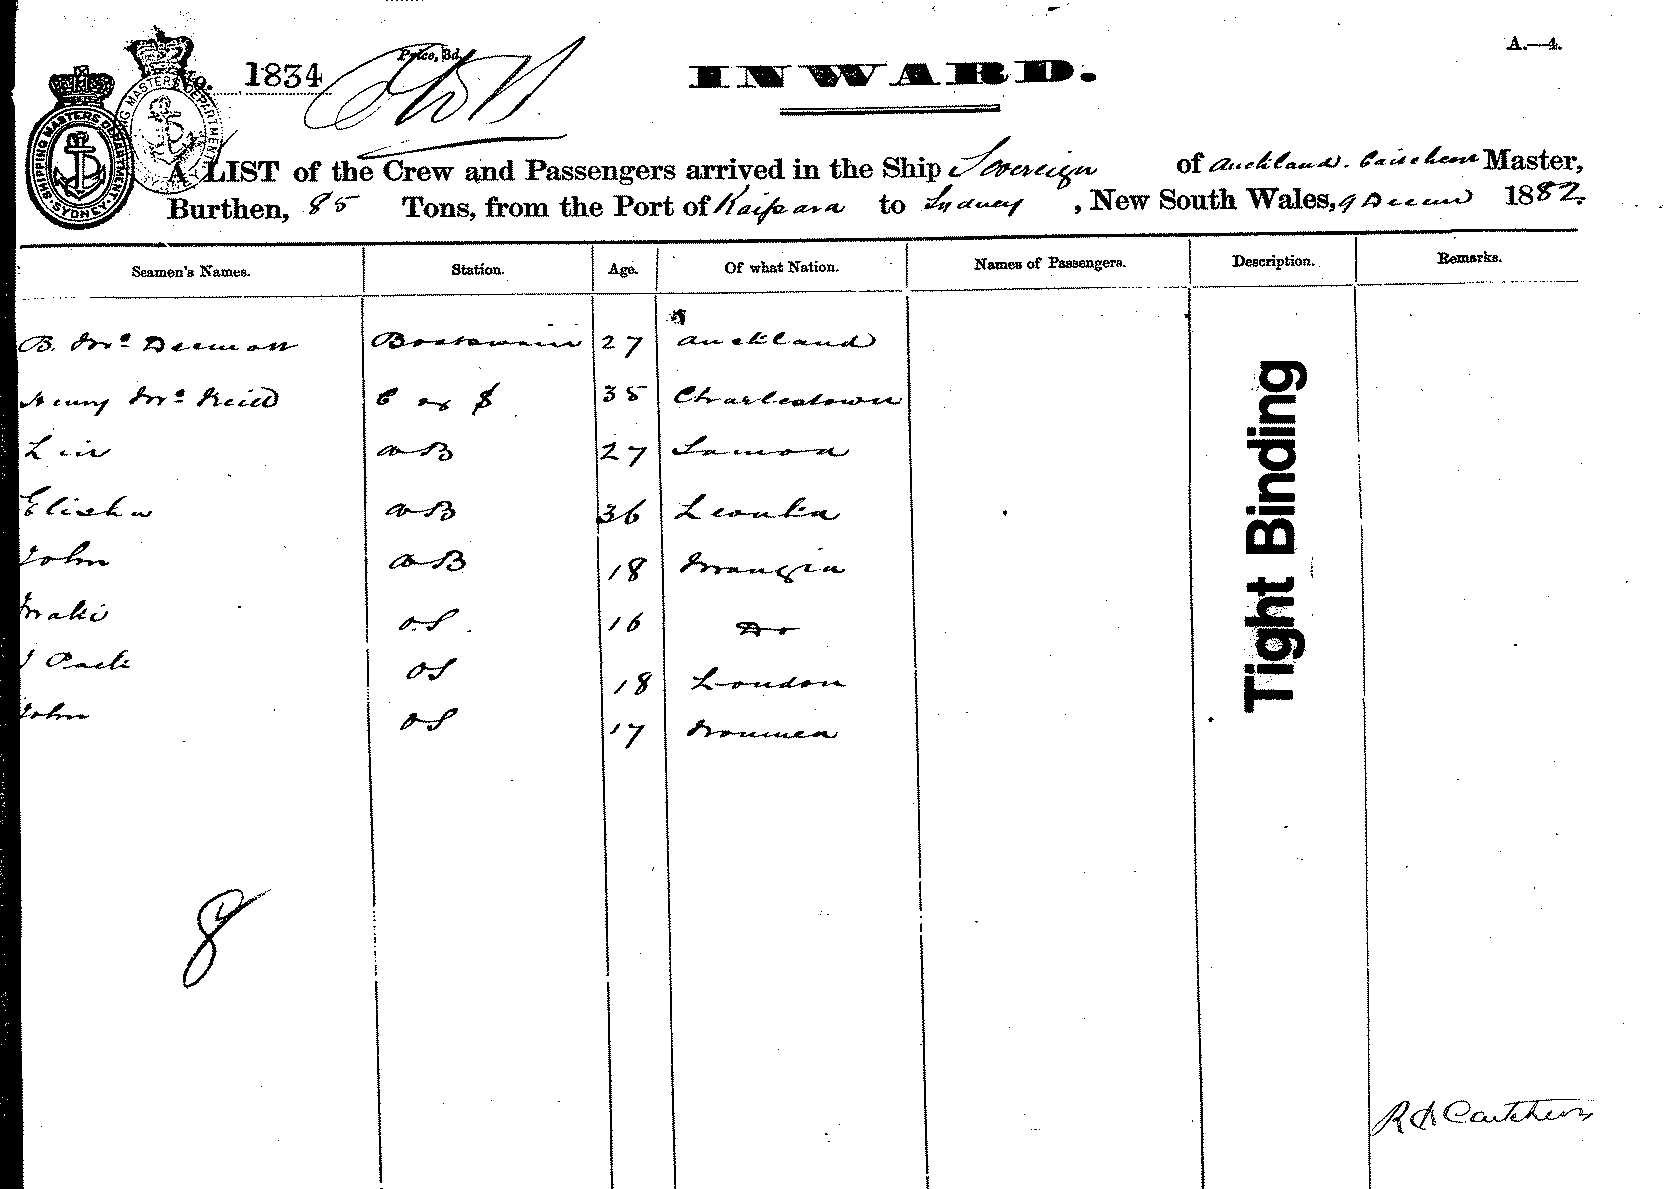 A.—4.
No. 1834 Price, 3d.
INWARD.
SHIPPING MASTERS DEPARTMENT SYDNEY
A LIST of the Crew and Passengers arrived in the Ship Sovereign of Auckland. Master,
Burthen, 85 Tons, from the Port of Kaipara to Sydney, New South Wales, 9 Decem 1882.
Seamen's Names. Station. Age. Of what Nation. Names of Passengers. Description. Remarks.
B. Mc Dermott Boatswain 27 Auckland
Henry Mc Neill C & S 35 Charlestown
27 Samoa
Elisha AB 36 Levuka
John AB 18 Mangia
Maki OS. 16 Do
OS 18 London
John OS 17 Noumea
Tight Binding
8